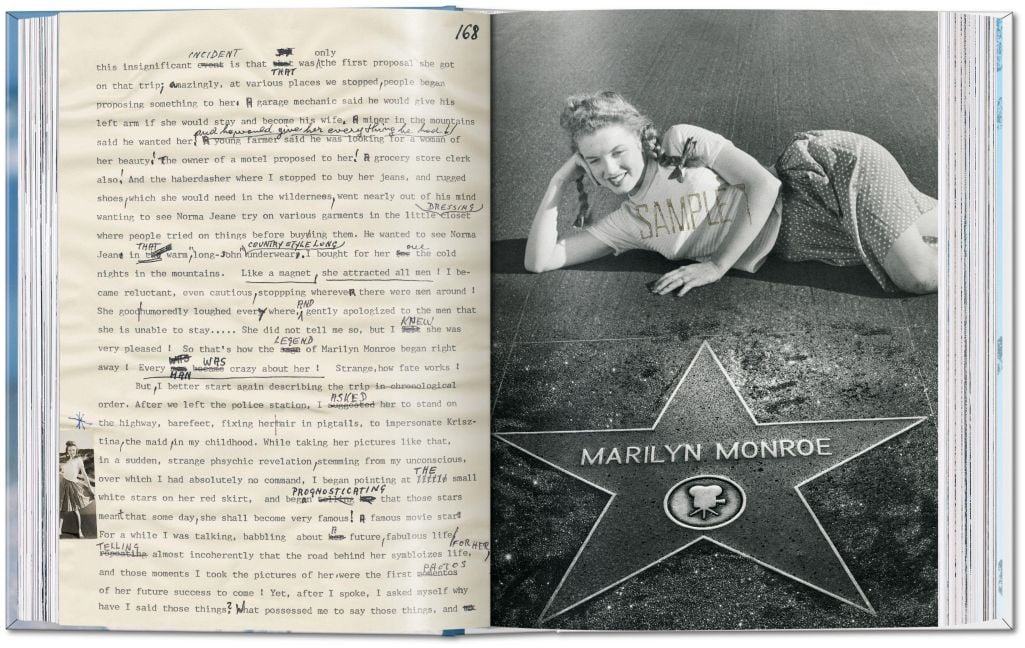 168
INCIDENT only
this insignificant event is that was the first proposal she got
THAT
on that trip; amazingly, at various places we stopped, people began
proposing something to her. A garage mechanic said he would give his
left arm if she would stay and become his wife. A miner in the mountains
and he would give her everything he had!
said he wanted her! A young farmer said he was looking for a woman of
her beauty! The owner of a motel proposed to her! A grocery store clerk
also! And the haberdasher where I stopped to buy her jeans, and rugged
shoes, which she would need in the wilderness, went nearly out of his mind
DRESSING
wanting to see Norma Jeane try on various garments in the little closet
where people tried on things before buying them. He wanted to see Norma
THAT COUNTRY STYLE LONG one
Jeane in warm, long-John underwear, I bought for her the cold
nights in the mountains. Like a magnet, she attracted all men ! I be-
came reluctant, even cautious, stoppping wherever there were men around !
AND
She good humoredly laughed every where, gently apologized to the men that
KNEW
she is unable to stay..... She did not tell me so, but I she was
LEGEND
very pleased ! So that's how the of Marilyn Monroe began right
WAS
away ! Every crazy about her ! Strange, how fate works !
MAN
But, I better start again describing the trip in chronological
ASKED
order. After we left the police station, I suggested her to stand on
the highway, barefeet, fixing her hair in pigtails, to impersonate Krisz-
tina, the maid, in my childhood. While taking her pictures like that,
in a sudden, strange phsychic revelation, stemming from my unconscious,
THE
over which I had absolutely no command, I began pointing at small
PROGNOSTICATING
white stars on her red skirt, and began telling that those stars
meant that some day, she shall become very famous! A famous movie star!
A
For a while I was talking, babbling about her future, fabulous life
TELLING FOR HER,
repeating almost incoherently that the road behind her symbloizes life,
PHOTOS
and those moments I took the pictures of her, were the first momentos
of her future success to come ! Yet, after I spoke, I asked myself why
have I said those things? What possessed me to say those things, and
SAMPLE
MARILYN MONROE